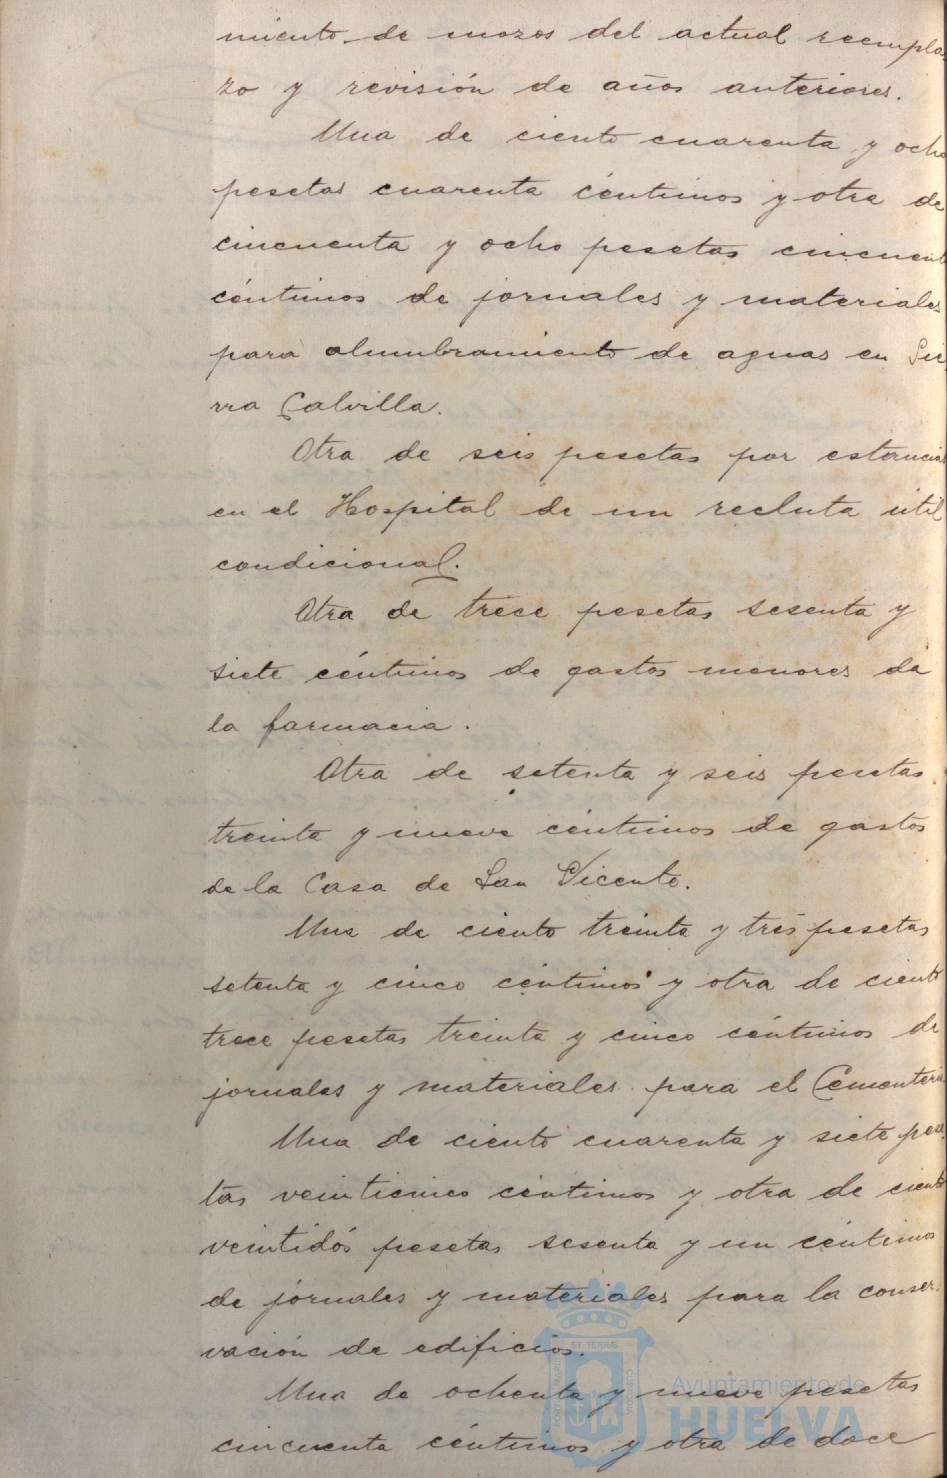 miento de mozos del actual reempla-
zo y revisión de años anteriores.
Una de ciento cuarenta y ocho
pesetas cuarenta céntimos y otra de
cincuenta y ocho pesetas cincuent
céntimos de jornales y materiales
para alumbramiento de aguas en Sie
rra Calvilla.
Otra de seis pesetas por estancias
en el Hospital de un recluta útil
condicional.
Otra de trece pesetas sesenta y
siete céntimos de gastos menores de
la farmacia.
Otra de setenta y seis pesetas
treinta y nueve céntimos de gastos
de la Casa de San Vicente.
Una de ciento treinta y tres pesetas
setenta y cinco céntimos y otra de ciento
trece pesetas treinta y cinco céntimos de
jornales y materiales para el Cementerio
Una de ciento cuarenta y siete pese
tas veinticinco céntimos y otra de ciento
veintidós pesetas sesenta y un céntimos
de jornales y materiales para la conser-
vación de edificios.
Una de ochenta y nueve pesetas
cincuenta céntimos y otra de doce
Ayuntamiento de
HUELVA